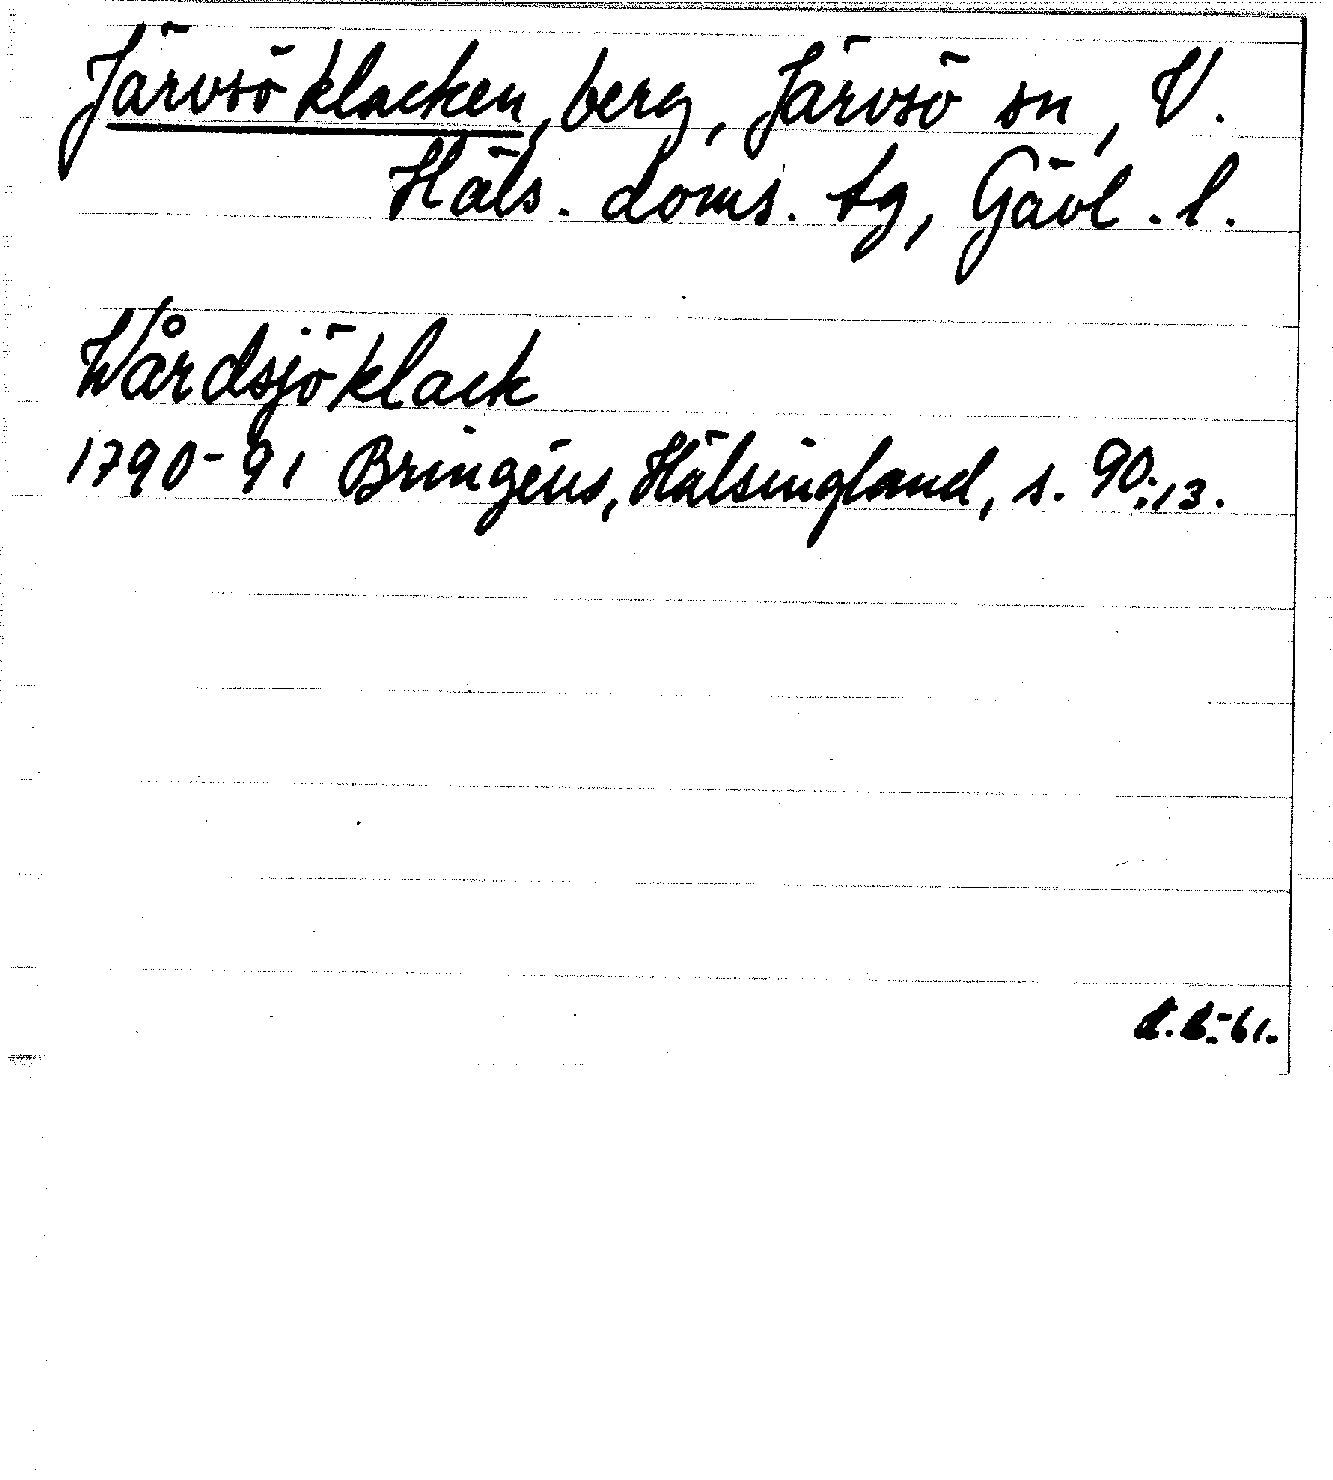 Järvsöklacken, berg, Järvsö sn, V.
Häls. doms. tg, Gävl. l.
Wårdsjöklack
1790-91 Bringéus, Hälsingland, s. 90:13.